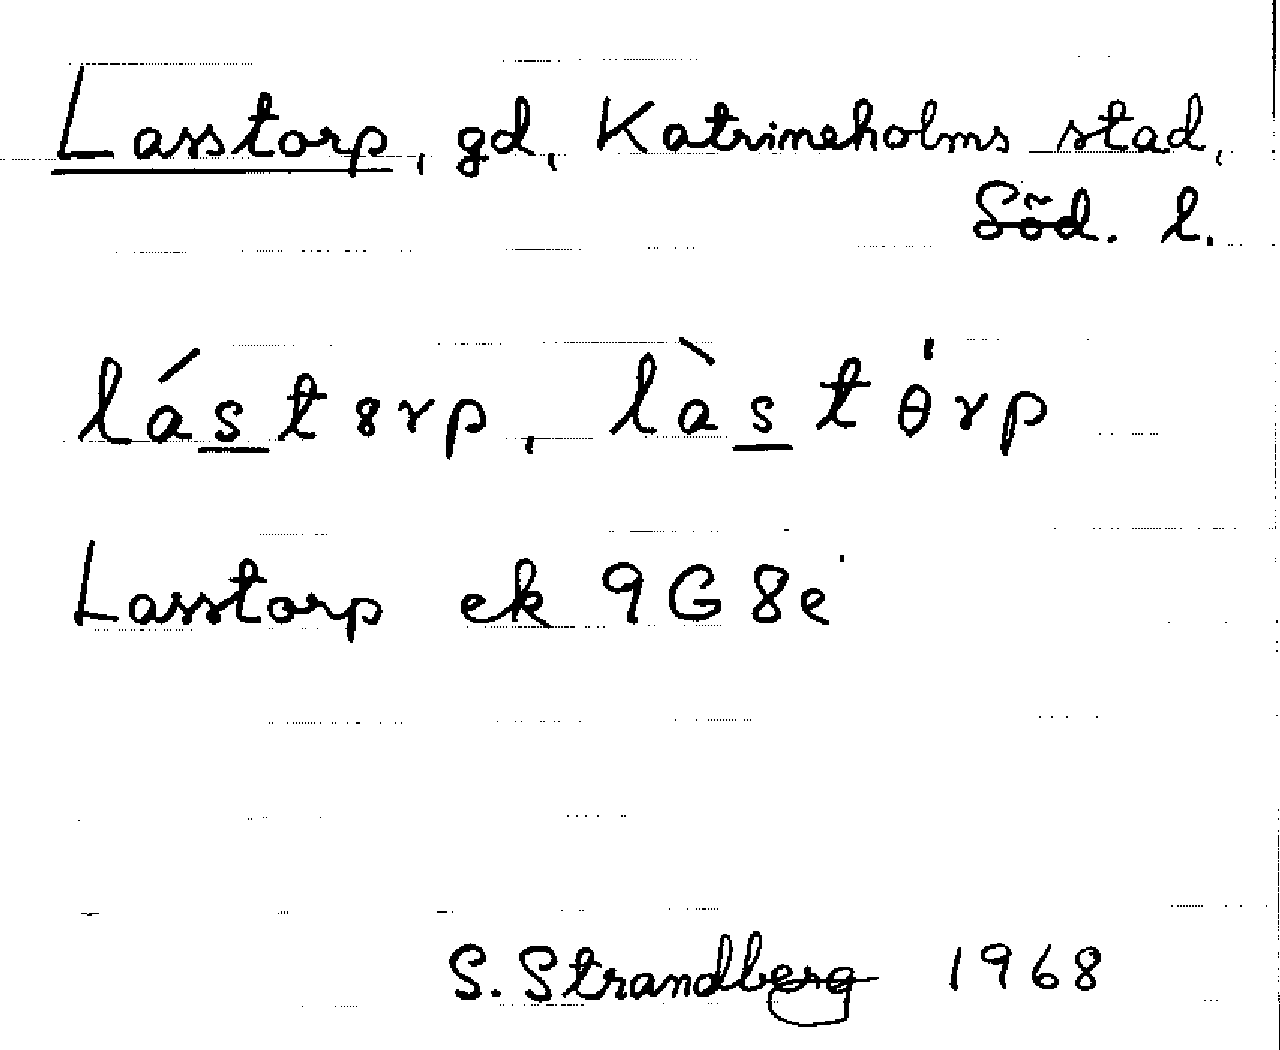 Lasstorp, gd, Katrineholms stad,
Söd. l.
lástȣrp, làstө̍rp
Lasstorp ek 9G8e
S. Strandberg 1968